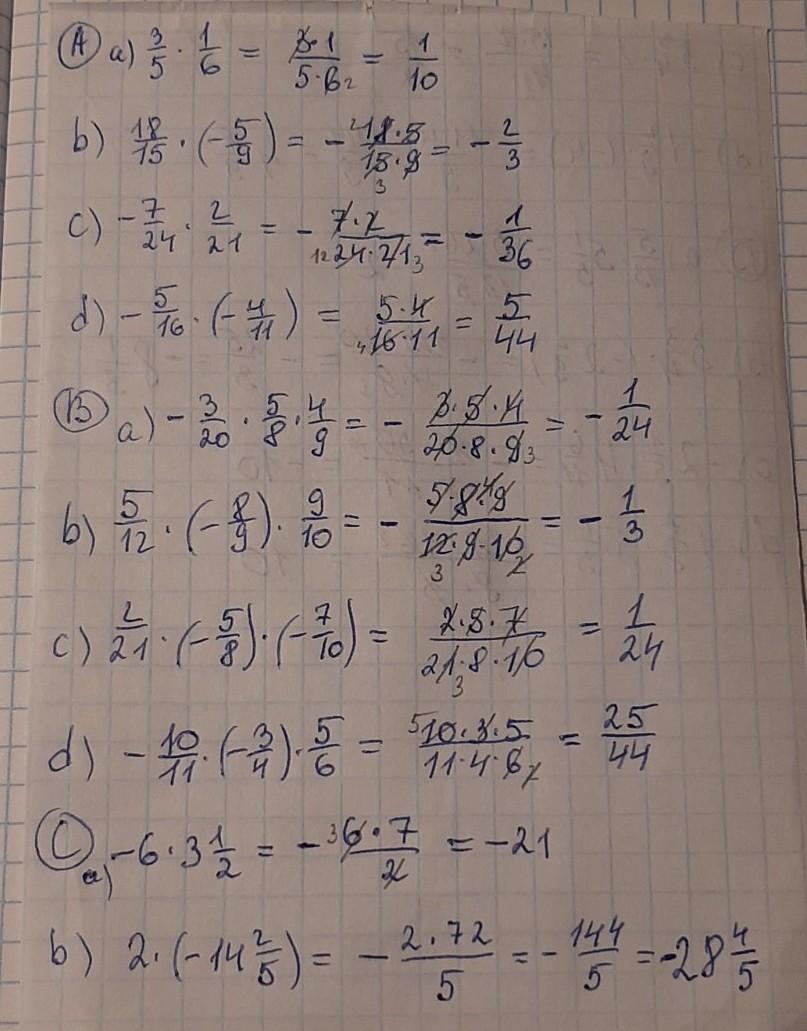 (A) a) 3/5 · 1/6 = 3·1/5·6 2 = 1/10
b) 18/15 · (-5/9) = - 2 18·5/15·9 3 = - 2/3
c) - 7/24 · 2/21 = - 7·2/12 24·21 3 = - 1/36
d) - 5/16 · (- 4/11) = 5·4/4 16·11 = 5/44
(B) a) - 3/20 · 5/8 · 4/9 = - 3·5·4/20·8·9 3 = - 1/24
b) 5/12 · (- 8/9) · 9/10 = - 5·8 4·9/12 3·9·10 2 = - 1/3
c) 2/21 · (- 5/8) · (- 7/10) = 2·5·7/21 3·8·10 = 1/24
d) - 10/11 · (- 3/4) · 5/6 = 5 10·3·5/11·4·6 2 = 25/44
(C) a) -6 · 3 1/2 = - 3 6·7/2 = -21
b) 2 · (-14 2/5) = - 2·72/5 = - 144/5 = -28 4/5